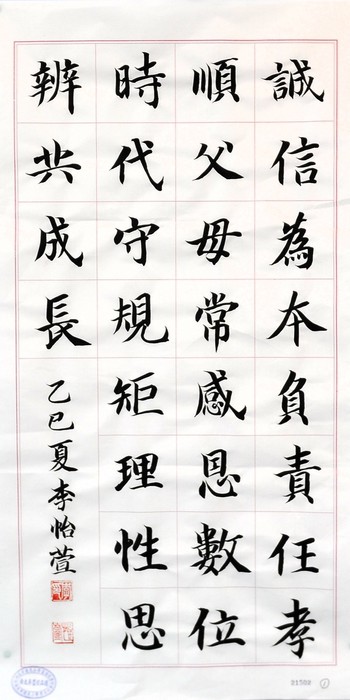 誠信為本負責任孝
順父母常感恩數位
時代守規矩理性思
辨共成長
乙巳夏李怡萱
01508